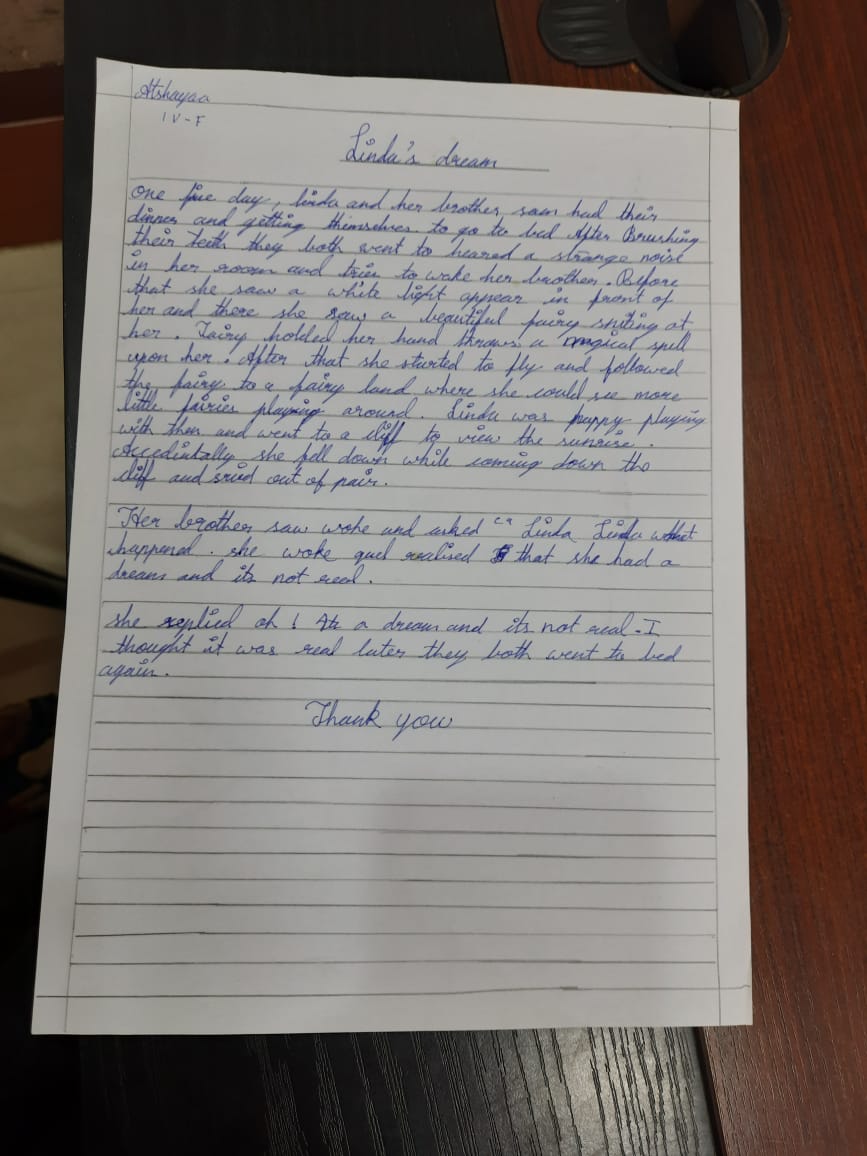 Atshayaa
IV-F
Linda's dream
One fine day, linda and her brother, sam had their
dinner and getting themselves to go to bed After Brushing
their teeth they both went to heared a strange noise
in her room and tries to wake her brother. Before
that she saw a white light appear in front of
her and there she saw a beautiful fairy smiling at
her. Fairy holded her hand throws a magical spell
upon her. After that she started to fly and followed
the fairy to a fairy land where she could see more
little fairies playing around. Linda was happy playing
with them and went to a cliff to view the sunrise.
Accedintally she fell down while coming down the
cliff and sried out of pain.
Her brother saw woke and asked " Linda Linda what
happened. she woke realised that she had a
dream and its not real.
she replied oh ! Its a dream and its not real. I
thought it was real later they both went to bed
again.
Thank you